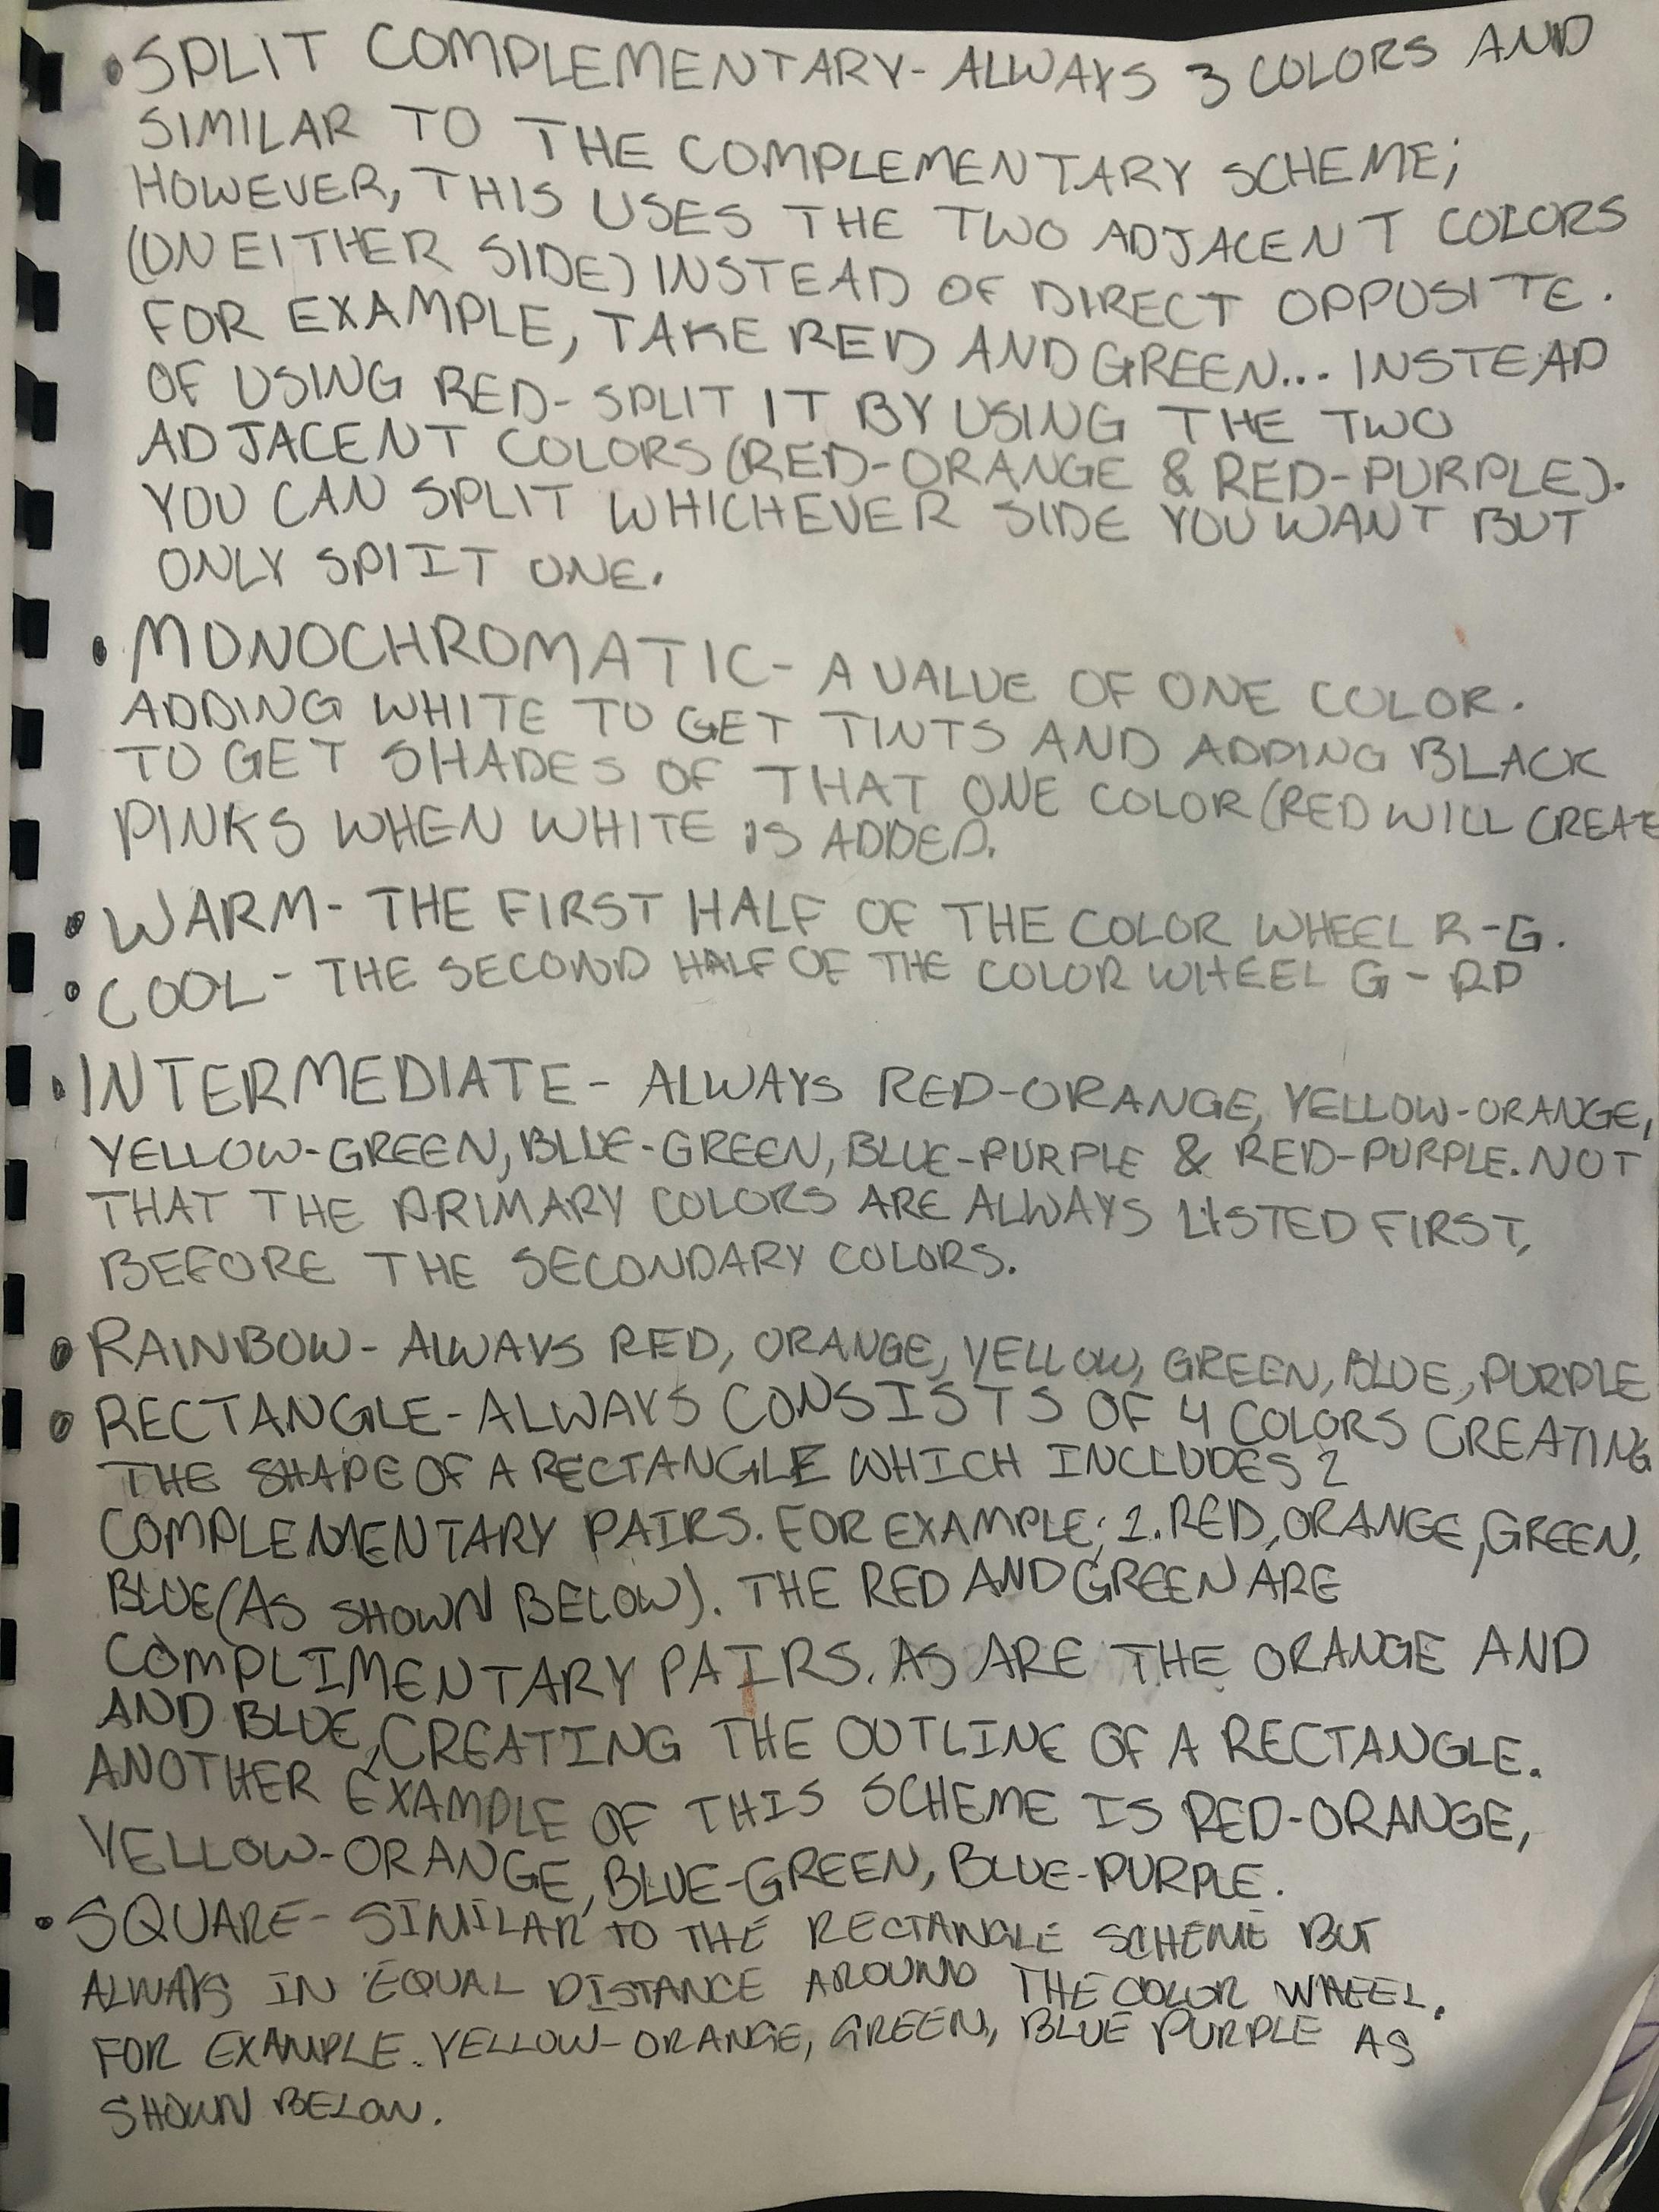 • SPLIT COMPLEMENTARY- ALWAYS 3 COLORS AND
SIMILAR TO THE COMPLEMENTARY SCHEME;
HOWEVER, THIS USES THE TWO ADJACENT COLORS
(ON EITHER SIDE) INSTEAD OF DIRECT OPPOSITE.
FOR EXAMPLE, TAKE RED AND GREEN... INSTEAD
OF USING RED- SPLIT IT BY USING THE TWO
ADJACENT COLORS (RED-ORANGE & RED-PURPLE).
YOU CAN SPLIT WHICHEVER SIDE YOU WANT BUT
ONLY SPLIT ONE.
• MONOCHROMATIC- A VALUE OF ONE COLOR.
ADDING WHITE TO GET TINTS AND ADDING BLACK
TO GET SHADES OF THAT ONE COLOR (RED WILL CREATE
PINKS WHEN WHITE IS ADDED.
• WARM- THE FIRST HALF OF THE COLOR WHEEL R-G.
• COOL- THE SECOND HALF OF THE COLOR WHEEL G-RP
• INTERMEDIATE- ALWAYS RED-ORANGE, YELLOW-ORANGE,
YELLOW-GREEN, BLUE-GREEN, BLUE-PURPLE & RED-PURPLE. NOT
THAT THE PRIMARY COLORS ARE ALWAYS LISTED FIRST,
BEFORE THE SECONDARY COLORS.
• RAINBOW- ALWAYS RED, ORANGE, YELLOW, GREEN, BLUE, PURPLE
• RECTANGLE- ALWAYS CONSISTS OF 4 COLORS CREATING
THE SHAPE OF A RECTANGLE WHICH INCLUDES 2
COMPLEMENTARY PAIRS. FOR EXAMPLE; 1. RED, ORANGE, GREEN,
BLUE (AS SHOWN BELOW). THE RED AND GREEN ARE
COMPLIMENTARY PAIRS. AS ARE THE ORANGE AND
AND BLUE, CREATING THE OUTLINE OF A RECTANGLE.
ANOTHER EXAMPLE OF THIS SCHEME IS RED-ORANGE,
YELLOW-ORANGE, BLUE-GREEN, BLUE-PURPLE.
• SQUARE- SIMILAR TO THE RECTANGLE SCHEME BUT
ALWAYS IN EQUAL DISTANCE AROUND THE COLOR WHEEL.
FOR EXAMPLE. YELLOW-ORANGE, GREEN, BLUE PURPLE AS
SHOWN BELOW.